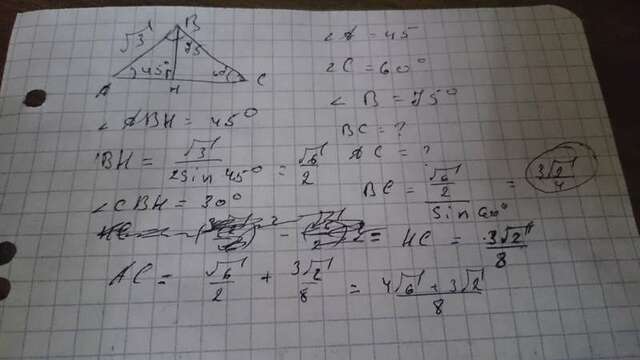 B
√3
75
45°
60
A
H
C
∠A = 45
∠C = 60°
∠B = 75°
∠ABH = 45°
BC = ?
BH = √3 / 2Sin 45° = √6 / 2
AC = ?
BC = √6/2 / Sin 60° = 3√2 / 4
∠CBH = 30°
= HC = 3√2 / 8
AC = √6 / 2 + 3√2 / 8 = 4√6 + 3√2 / 8